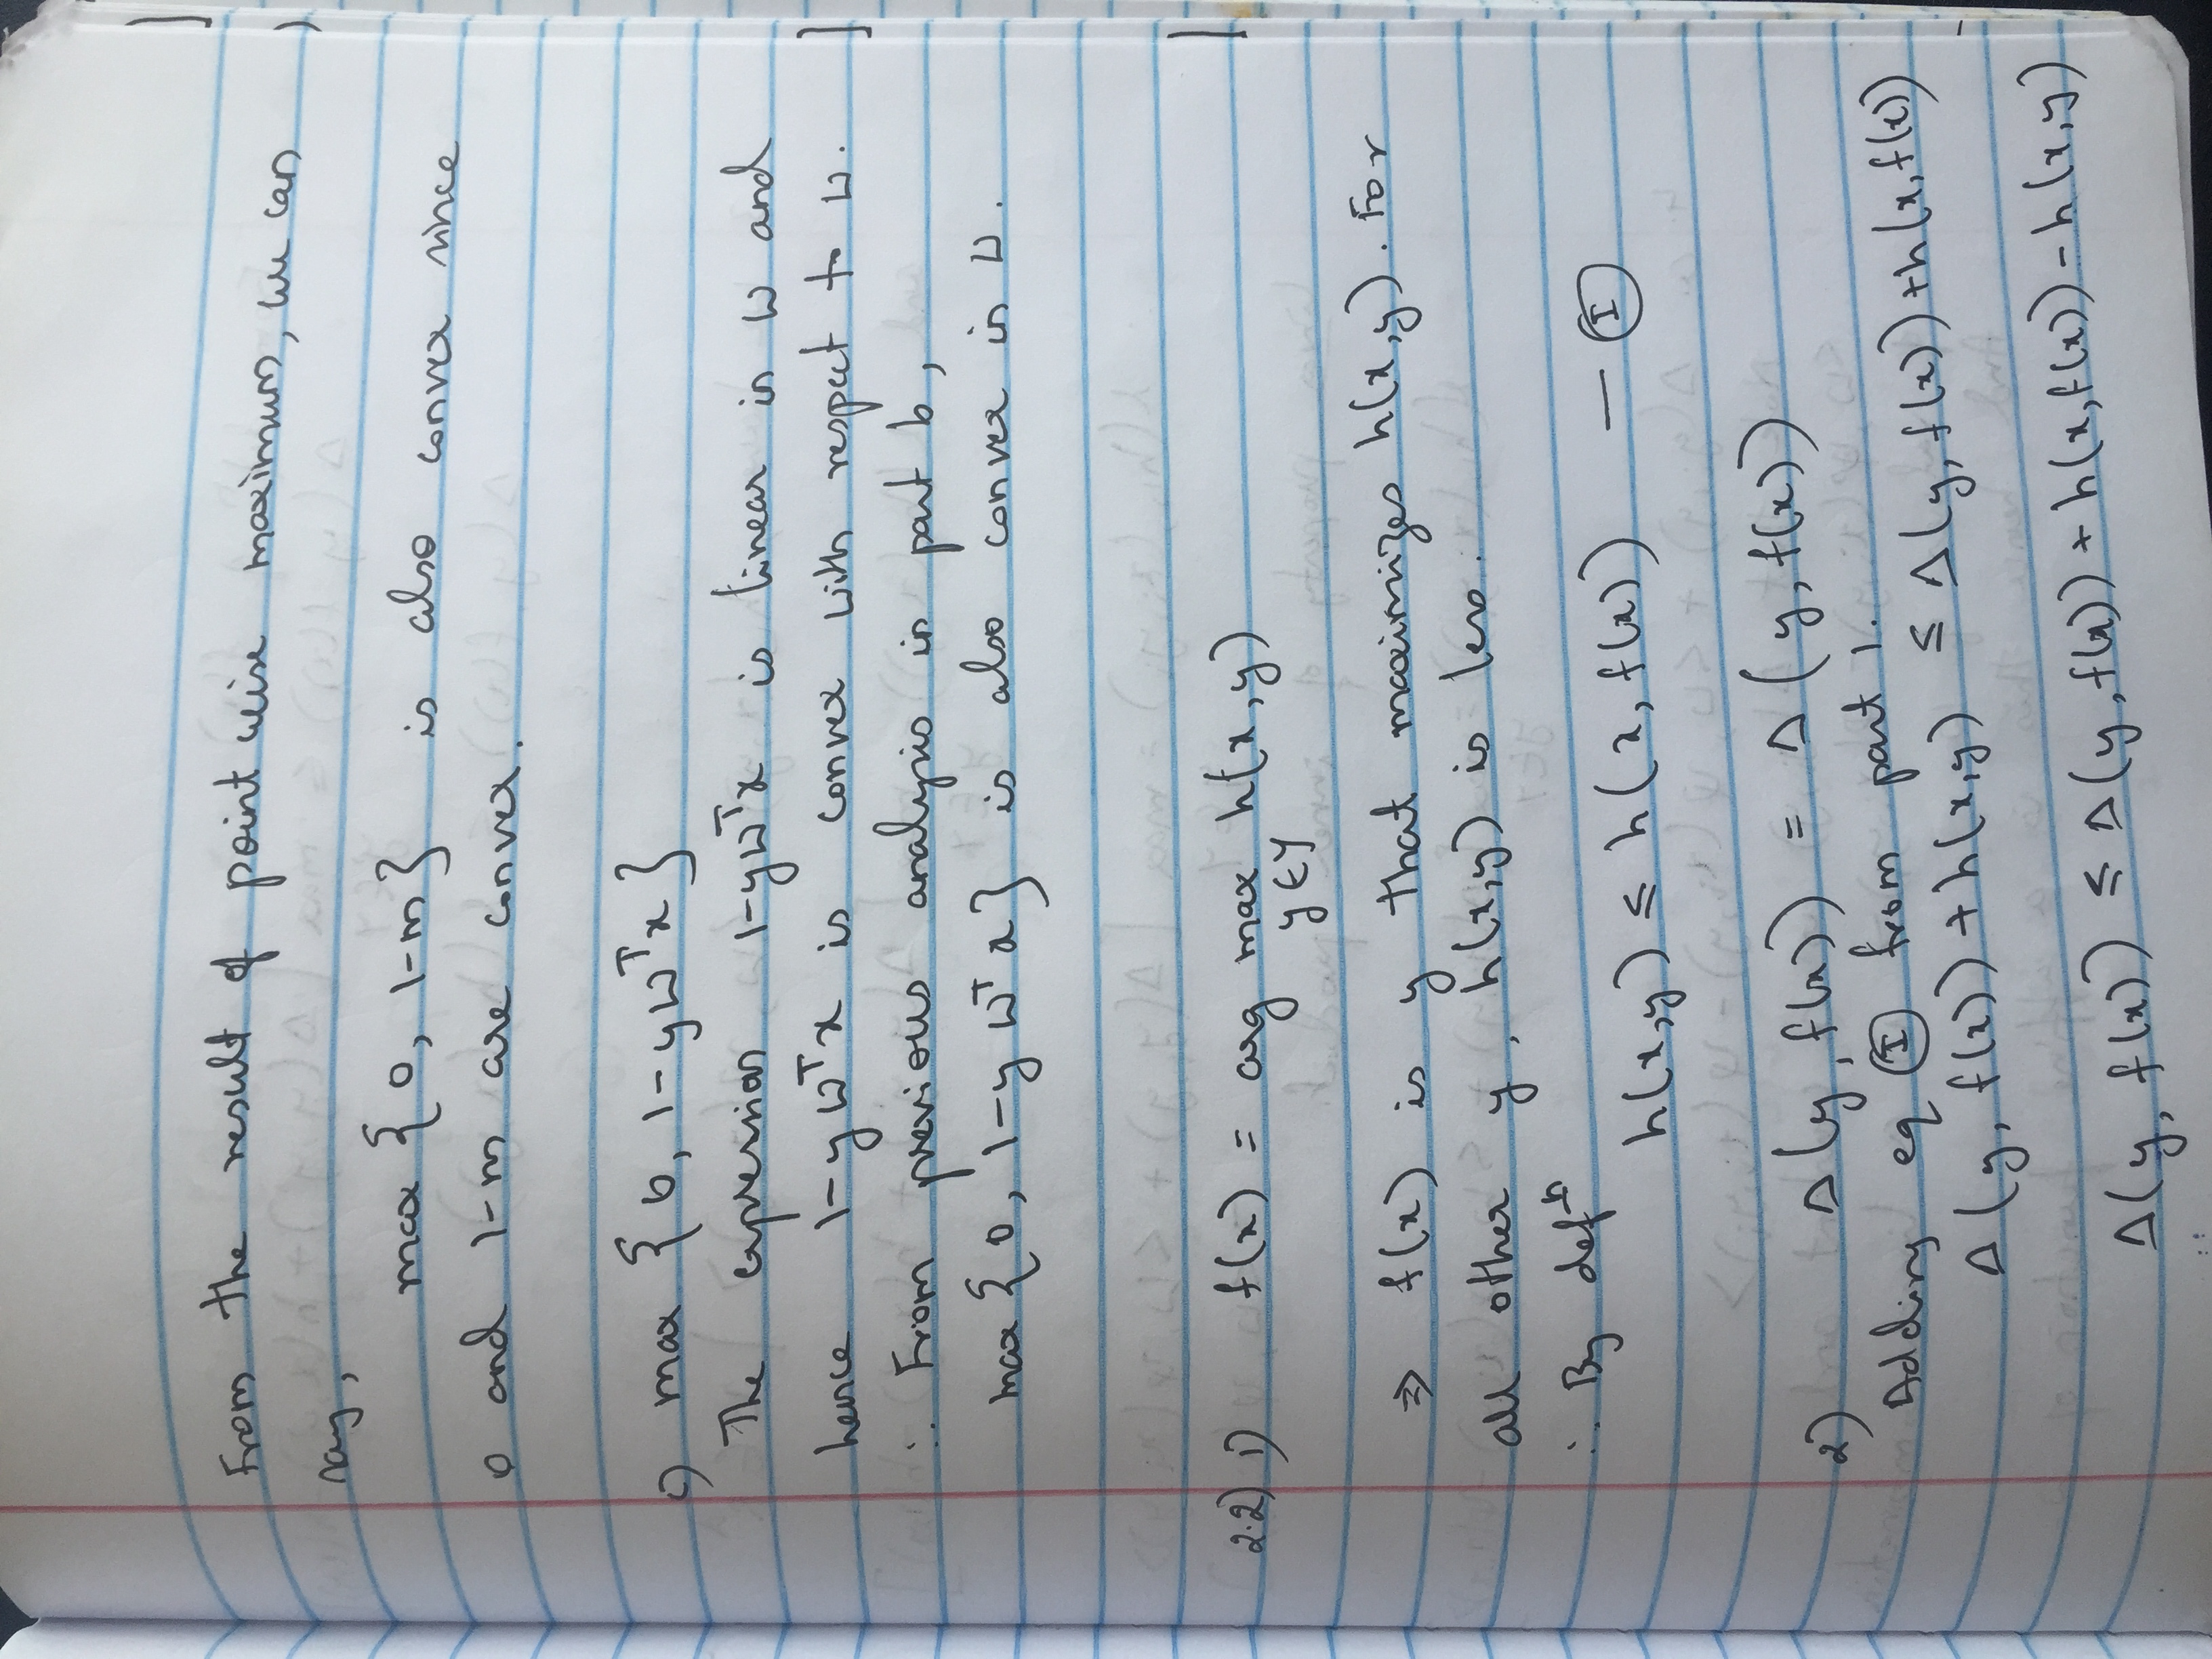 From the result of point wise maximum, we can
say,
max { 0, 1-m } is also convex since
0 and 1-m are convex.
c) max { 0, 1-yω^T x }
The expression 1-yω^T x is linear in ω and
hence 1-yω^T x is convex with respect to ω.
∴ From previous analysis in part b,
max { 0, 1-y ω^T x } is also convex in ω.
2.2) 1) f(x) = arg max h(x,y)
y ∈ Y
⇒ f(x) is y that maximizes h(x,y). For
all other y, h(x,y) is less.
∴ By def^n
h(x,y) ≤ h(x, f(x)) — Ⓘ
2) Δ(y, f(x)) = Δ(y, f(x))
Adding eq Ⓘ from part 1.
Δ(y, f(x)) + h(x,y) ≤ Δ(y, f(x)) + h(x, f(x))
Δ(y, f(x)) ≤ Δ(y, f(x)) + h(x, f(x)) - h(x,y)